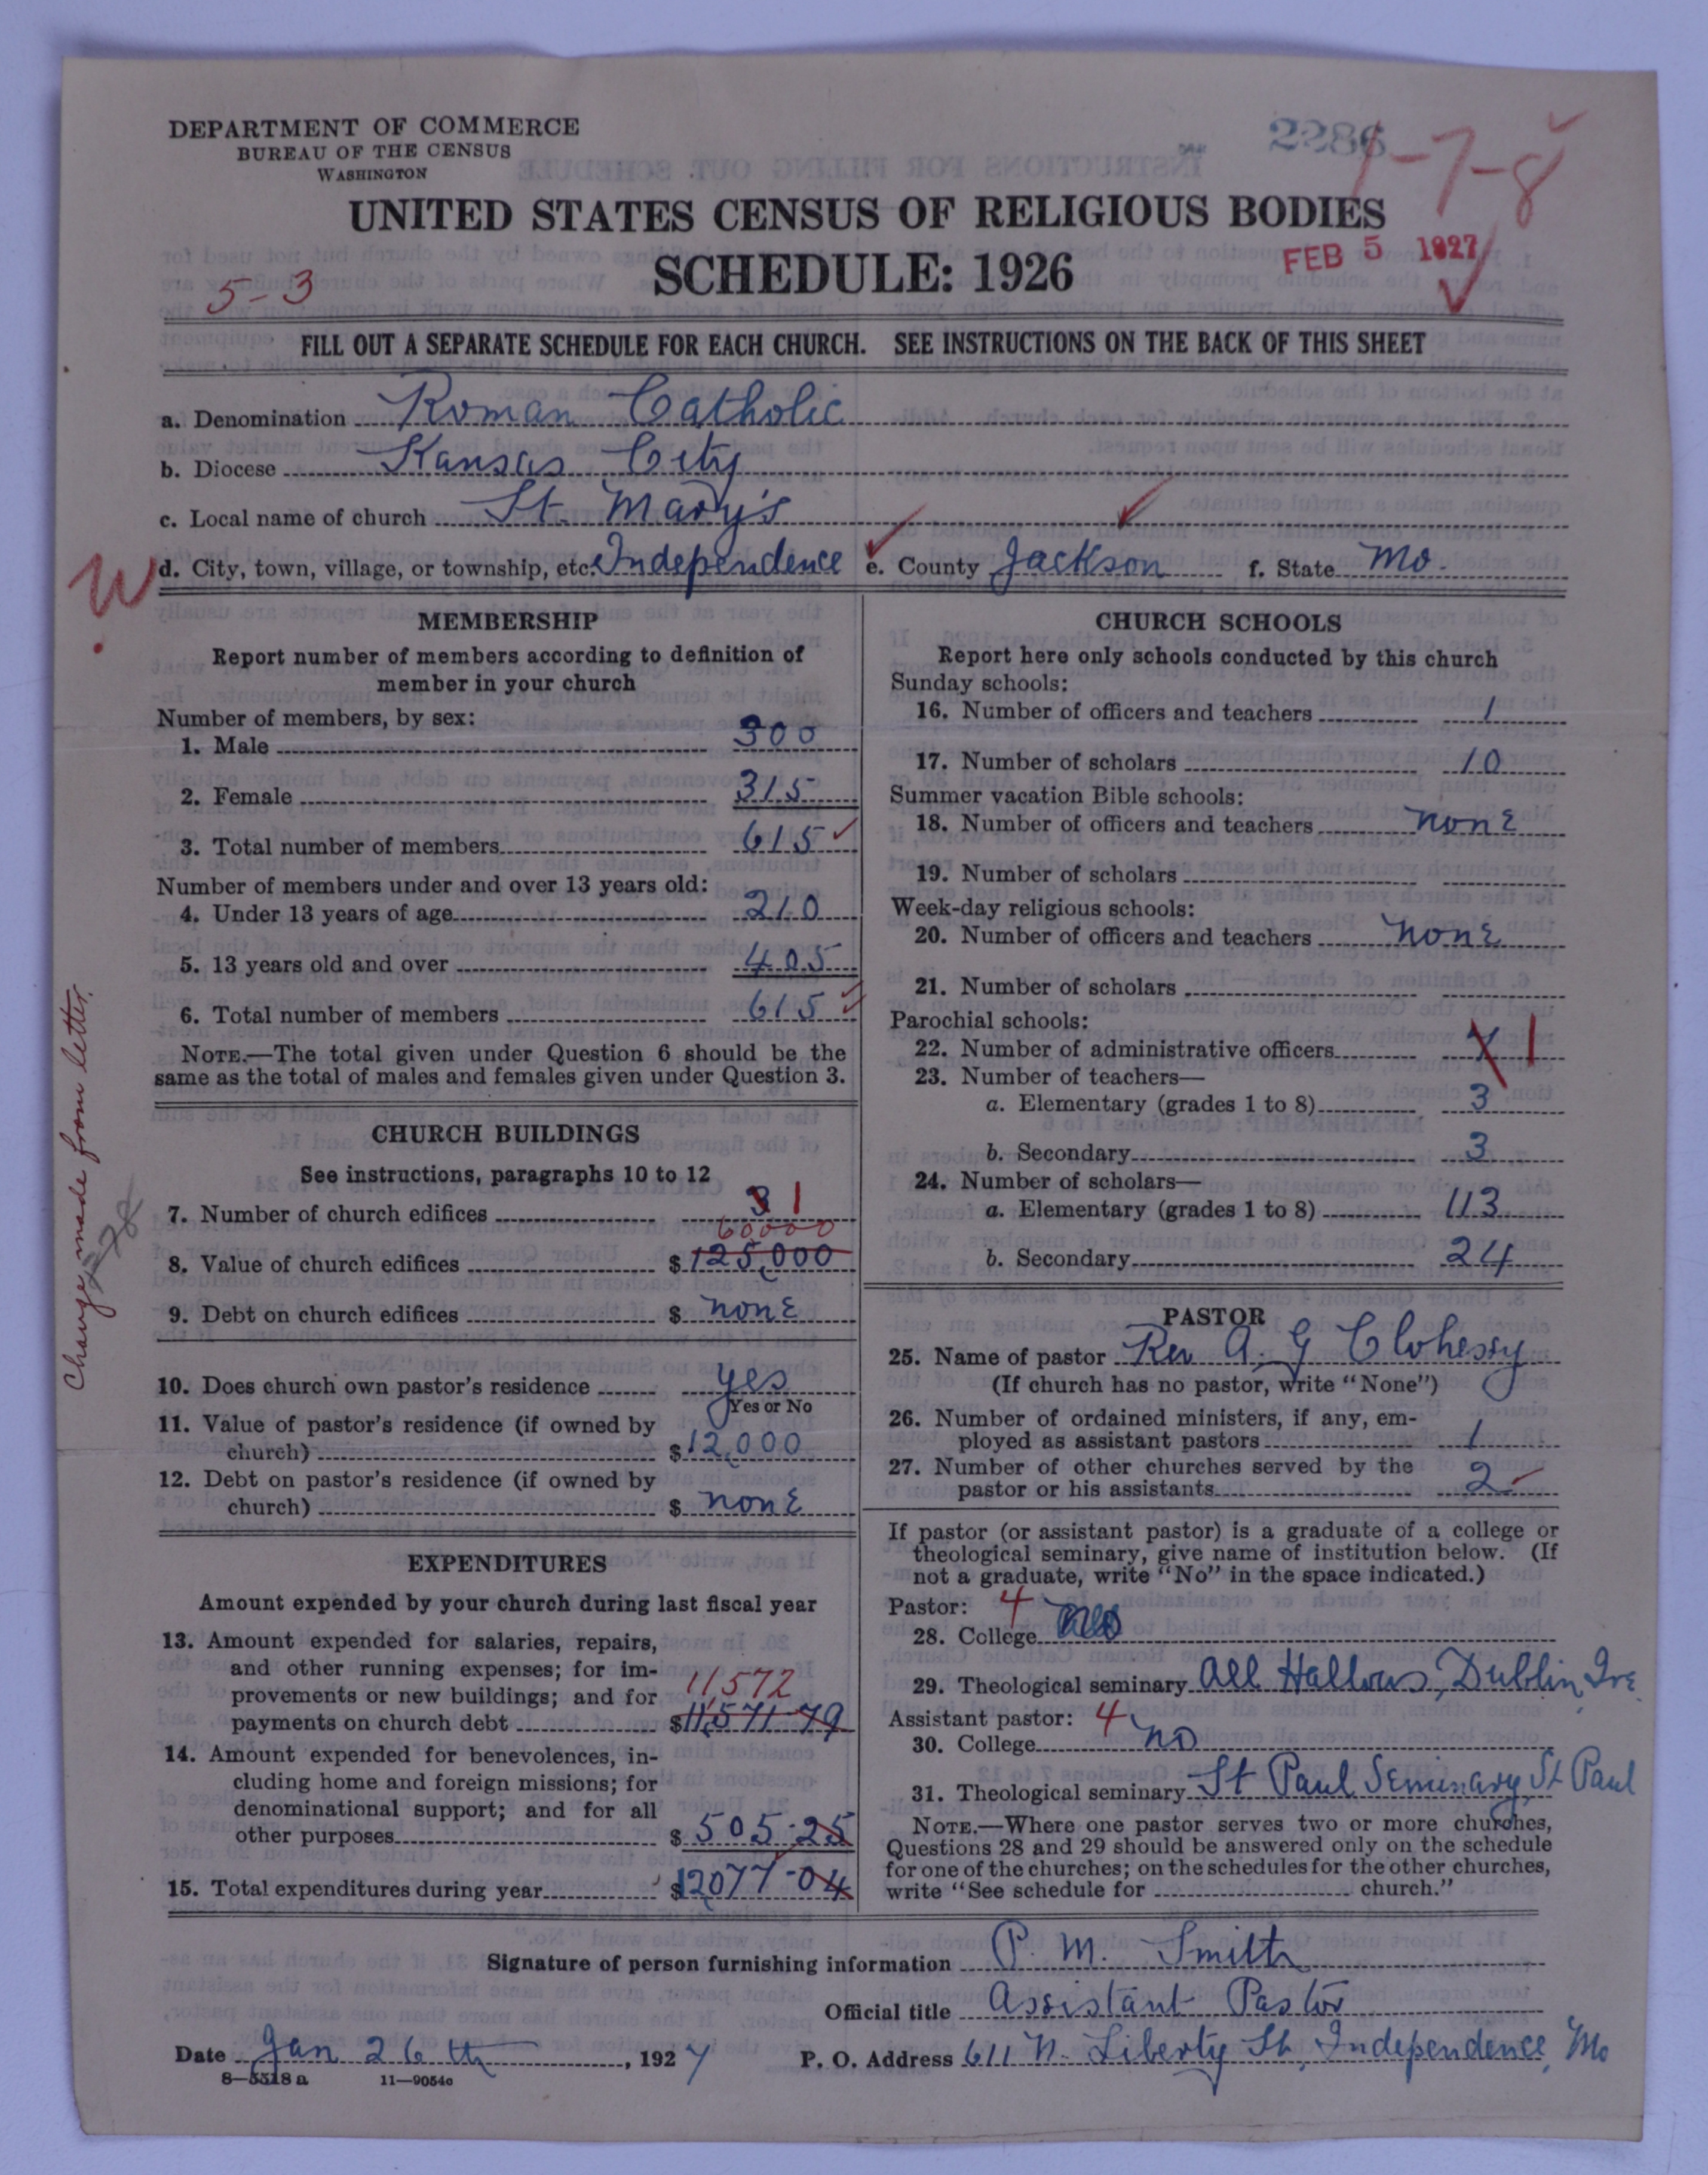 DEPARTMENT OF COMMERCE
BUREAU OF THE CENSUS
WASHINGTON
2286
1-7-8
UNITED STATES CENSUS OF RELIGIOUS BODIES
SCHEDULE: 1926
FEB 5 1927
5-3
FILL OUT A SEPARATE SCHEDULE FOR EACH CHURCH. SEE INSTRUCTIONS ON THE BACK OF THIS SHEET
a. Denomination Roman Catholic
b. Diocese Kansas City
c. Local name of church St. Mary's
W d. City, town, village, or township, etc. Independence e. County Jackson f. State Mo.
MEMBERSHIP
Report number of members according to definition of
member in your church
Number of members, by sex:
1. Male 300
2. Female 315
3. Total number of members 615
Number of members under and over 13 years old:
4. Under 13 years of age 210
5. 13 years old and over 405
6. Total number of members 615
NOTE.—The total given under Question 6 should be the
same as the total of males and females given under Question 3.
Change made from letter.
CHURCH BUILDINGS
See instructions, paragraphs 10 to 12
7. Number of church edifices 3 1
60000
8. Value of church edifices $ 125,000
9. Debt on church edifices $ none
10. Does church own pastor's residence yes
Yes or No
11. Value of pastor's residence (if owned by
church) $ 12,000
12. Debt on pastor's residence (if owned by
church) $ none
EXPENDITURES
Amount expended by your church during last fiscal year
13. Amount expended for salaries, repairs,
and other running expenses; for im-
provements or new buildings; and for 11,572
payments on church debt $ 11,571-79
14. Amount expended for benevolences, in-
cluding home and foreign missions; for
denominational support; and for all
other purposes $ 505-25
15. Total expenditures during year $ 12077-04
CHURCH SCHOOLS
Report here only schools conducted by this church
Sunday schools:
16. Number of officers and teachers 1
17. Number of scholars 10
Summer vacation Bible schools:
18. Number of officers and teachers none
19. Number of scholars
Week-day religious schools:
20. Number of officers and teachers none
21. Number of scholars
Parochial schools:
22. Number of administrative officers 1
23. Number of teachers—
a. Elementary (grades 1 to 8) 3
b. Secondary 3
24. Number of scholars—
a. Elementary (grades 1 to 8) 113
b. Secondary 24
PASTOR
25. Name of pastor Rev A. G Clohessy
(If church has no pastor, write "None")
26. Number of ordained ministers, if any, em-
ployed as assistant pastors 1
27. Number of other churches served by the
pastor or his assistants 2
If pastor (or assistant pastor) is a graduate of a college or
theological seminary, give name of institution below. (If
not a graduate, write "No" in the space indicated.)
Pastor: 4
28. College
29. Theological seminary All Hallows, Dublin, Ire
Assistant pastor: 4
30. College no
31. Theological seminary St Paul Seminary, St Paul
NOTE.—Where one pastor serves two or more churches,
Questions 28 and 29 should be answered only on the schedule
for one of the churches; on the schedules for the other churches,
write "See schedule for church."
Signature of person furnishing information P. M. Smith
Official title Assistant Pastor
Date Jan 26th, 1927 P. O. Address 611 N. Liberty St, Independence, Mo
8—5518 a 11—9054c